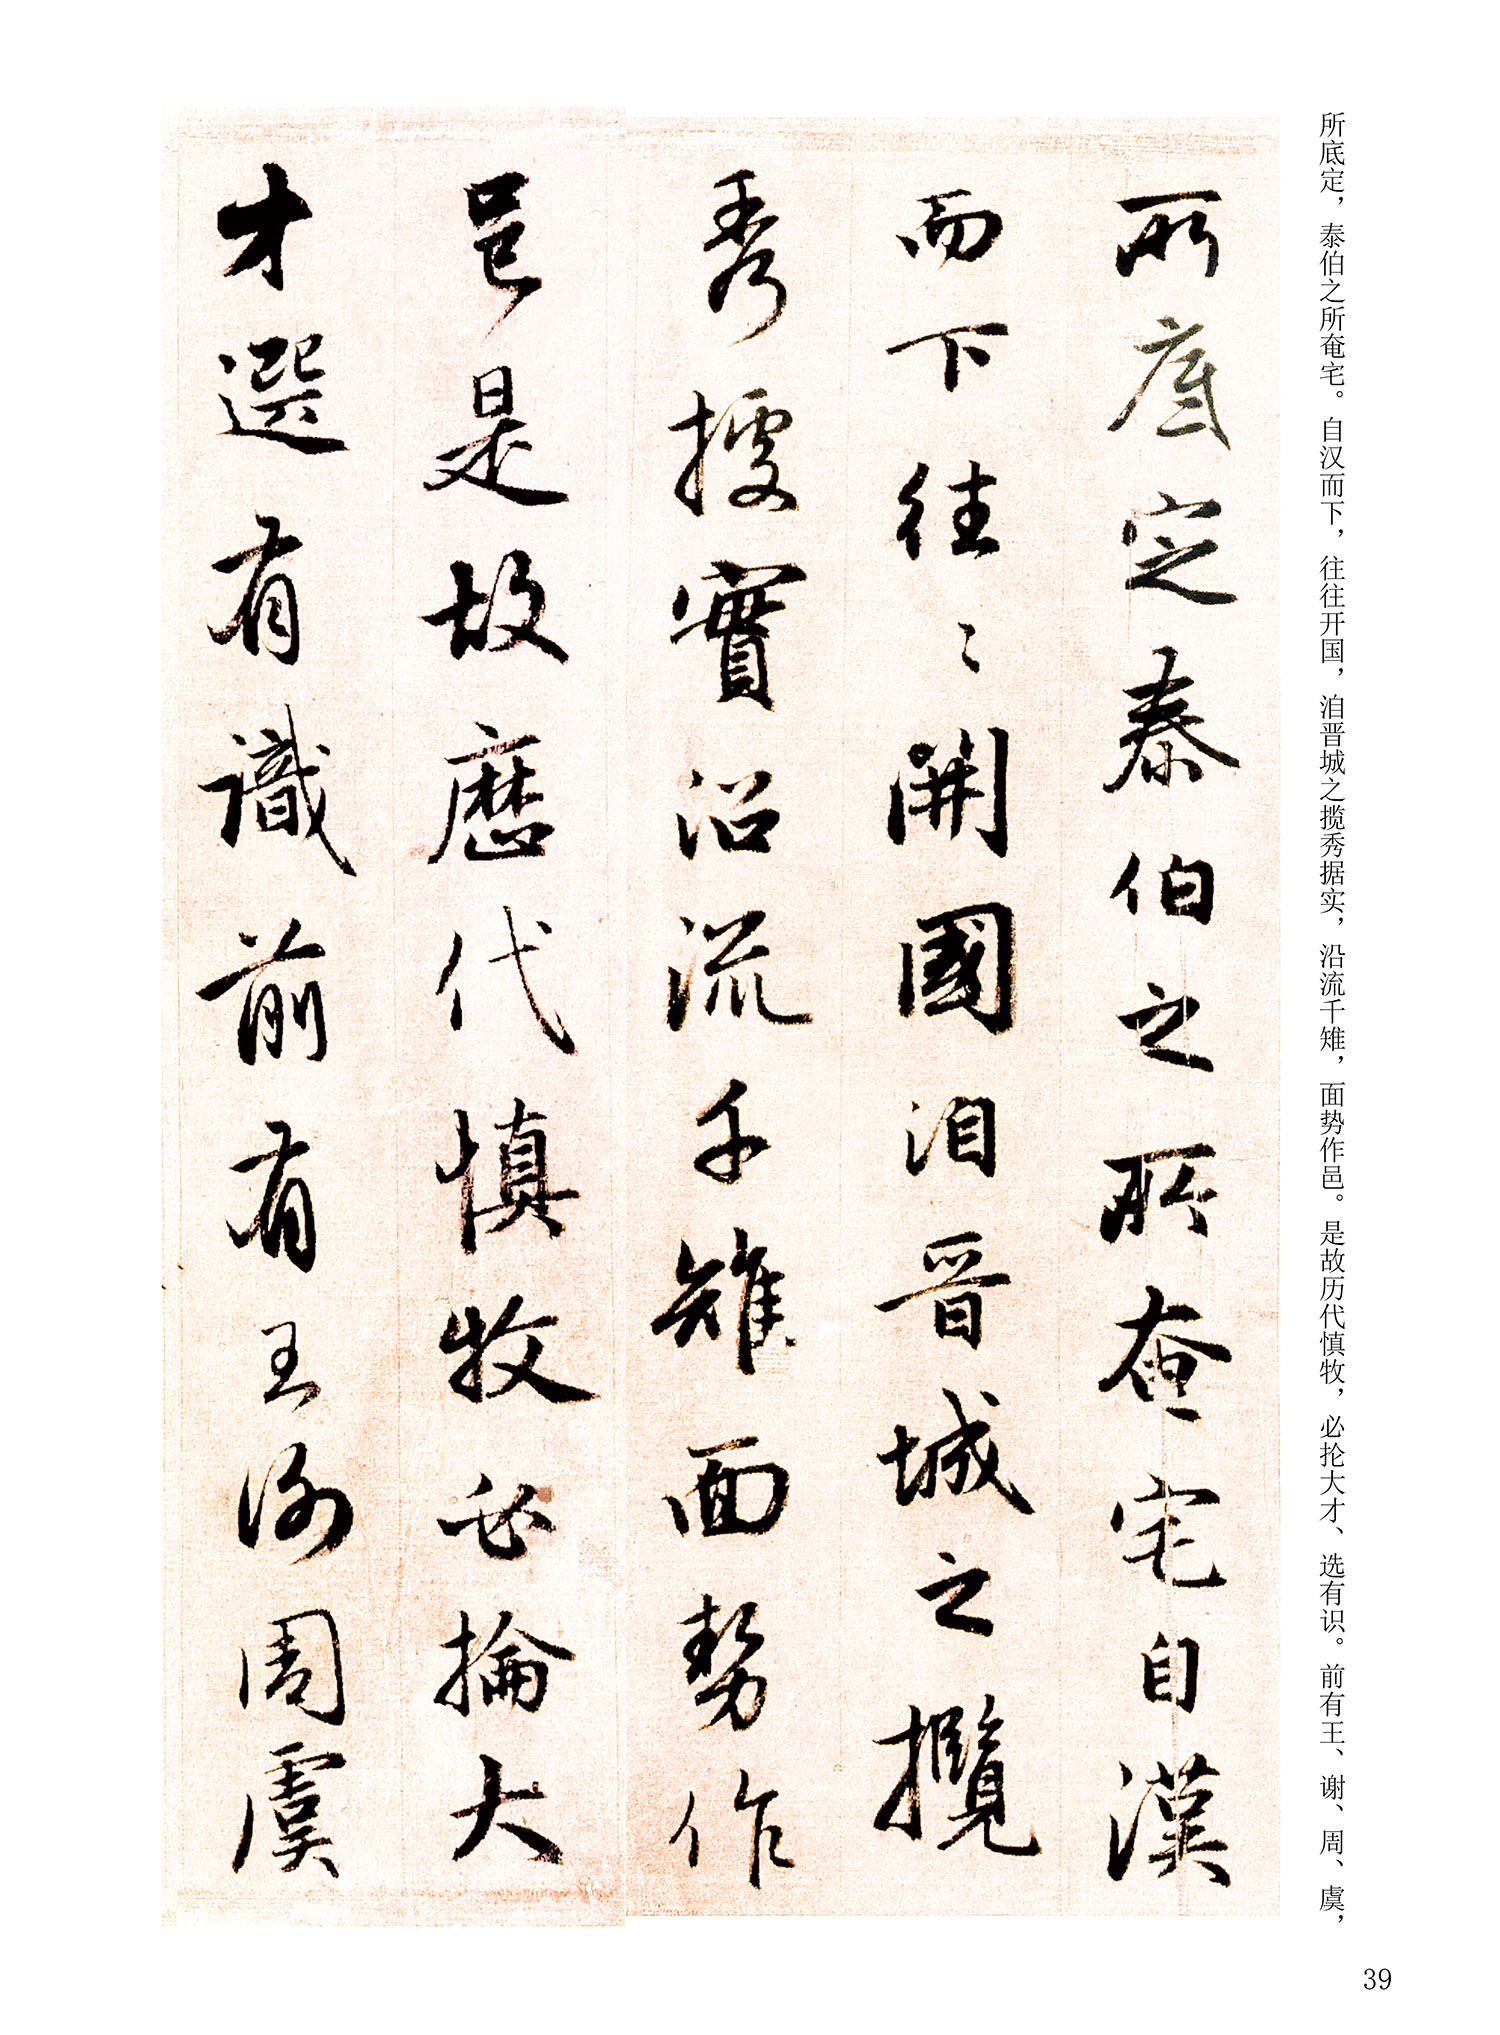 所底定，泰伯之所奄宅。自汉而下，往往开国，洎晋城之揽秀据实，沿流千雉，面势作邑。是故历代慎牧，必抡大才、选有识。前有王、谢、周、虞，
所底定泰伯之所奄宅自漢
而下往〻開國洎晋城之攬
秀㨿實沿流千雉面勢作
邑是故歷代慎牧必掄大
才選有識前有王謝周虞
39